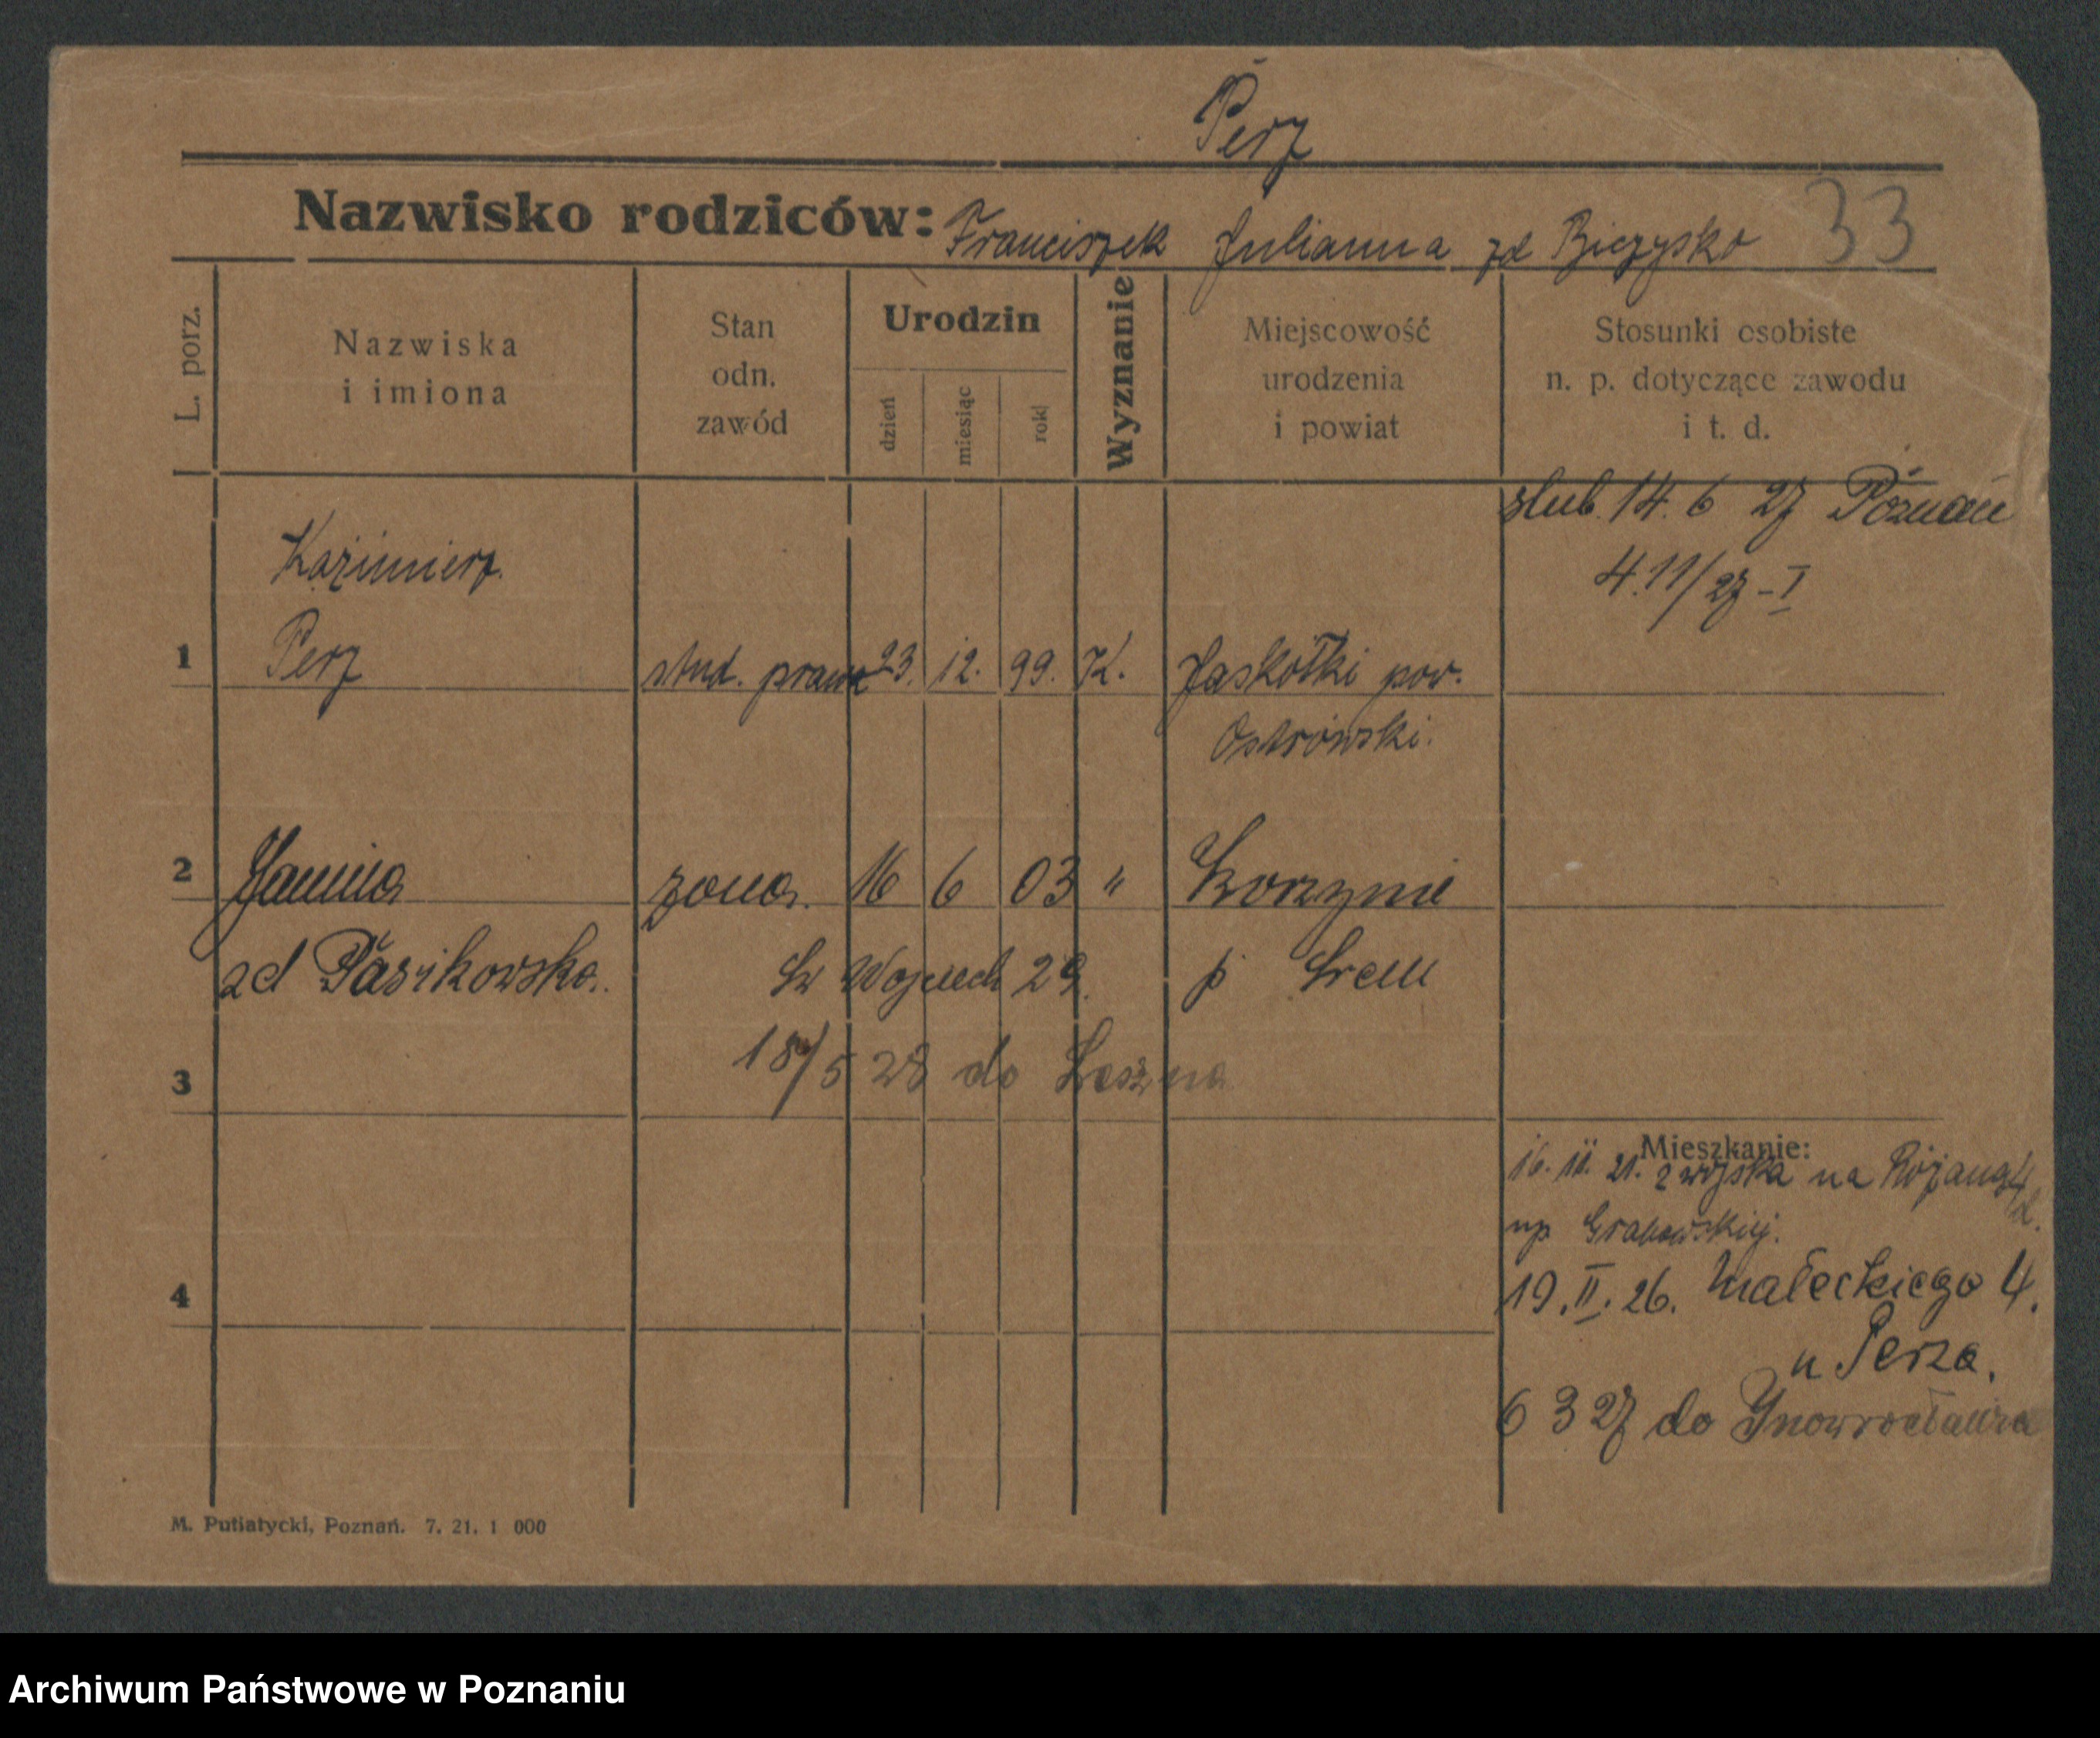 Perz
Nazwisko rodziców: Franciszek Julianna zd Biczysko 33
L. porz.
Nazwiska
i imiona
Stan
odn.
zawód
Urodzin
dzień
miesiąc
rok
Wyznanie
Miejscowość
urodzenia
i powiat
Stosunki osobiste
n. p. dotyczące zawodu
i t. d.
slub. 14. 6 27 Poznań
4.11/27 - I
Kazimierz
1 Perz stud. prawa 23. 12. 99. K. Jaskółki pow.
Ostrowski.
2 Janina zona. 16 6 03 "
zd Pasikowska. Sw Wojciech 29. p Srem
3 18/5 28 do Leszna
Mieszkanie:
16. 11. 21. z wojska na Różaną 4/
np Grabowskiej.
4
19. II. 26. Małeckiego 4.
u Perza.
6 3 27 do Inowrocławia
M. Putiatycki, Poznań. 7. 21. 1 000
Archiwum Państwowe w Poznaniu